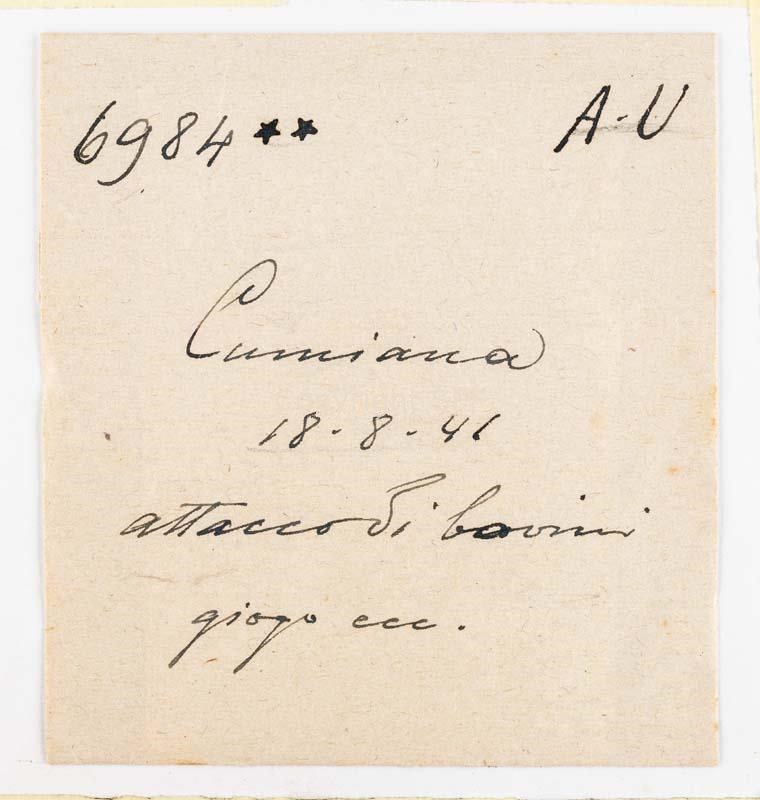 6984** A-U
Cumiana
18-8-41
attacco di bovini
giogo ecc.